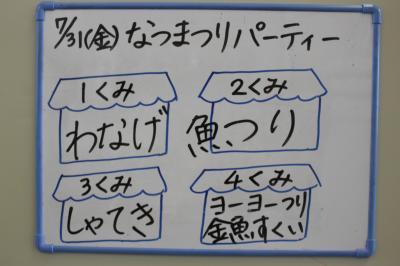 7/31(金)なつまつりパーティー
1くみ
わなげ
2くみ
魚つり
3くみ
しゃてき
4くみ
ヨーヨーつり
金魚すくい